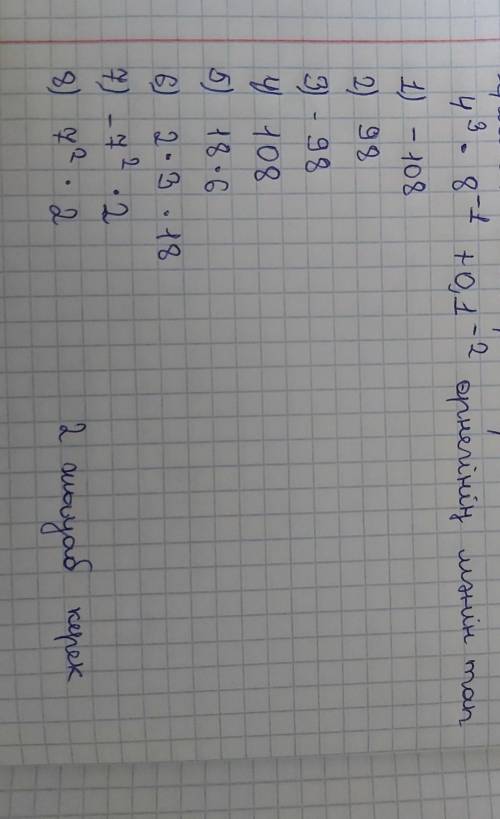 4³ · 8⁻¹ + 0,1⁻² өрнегінің мәнін тап
1) - 108
2) 98
3) - 98
4) 108
5) 18 · 6
6) 2 · 3 · 18
7) - 7² · 2
8) 7² · 2
2 жауаб керек